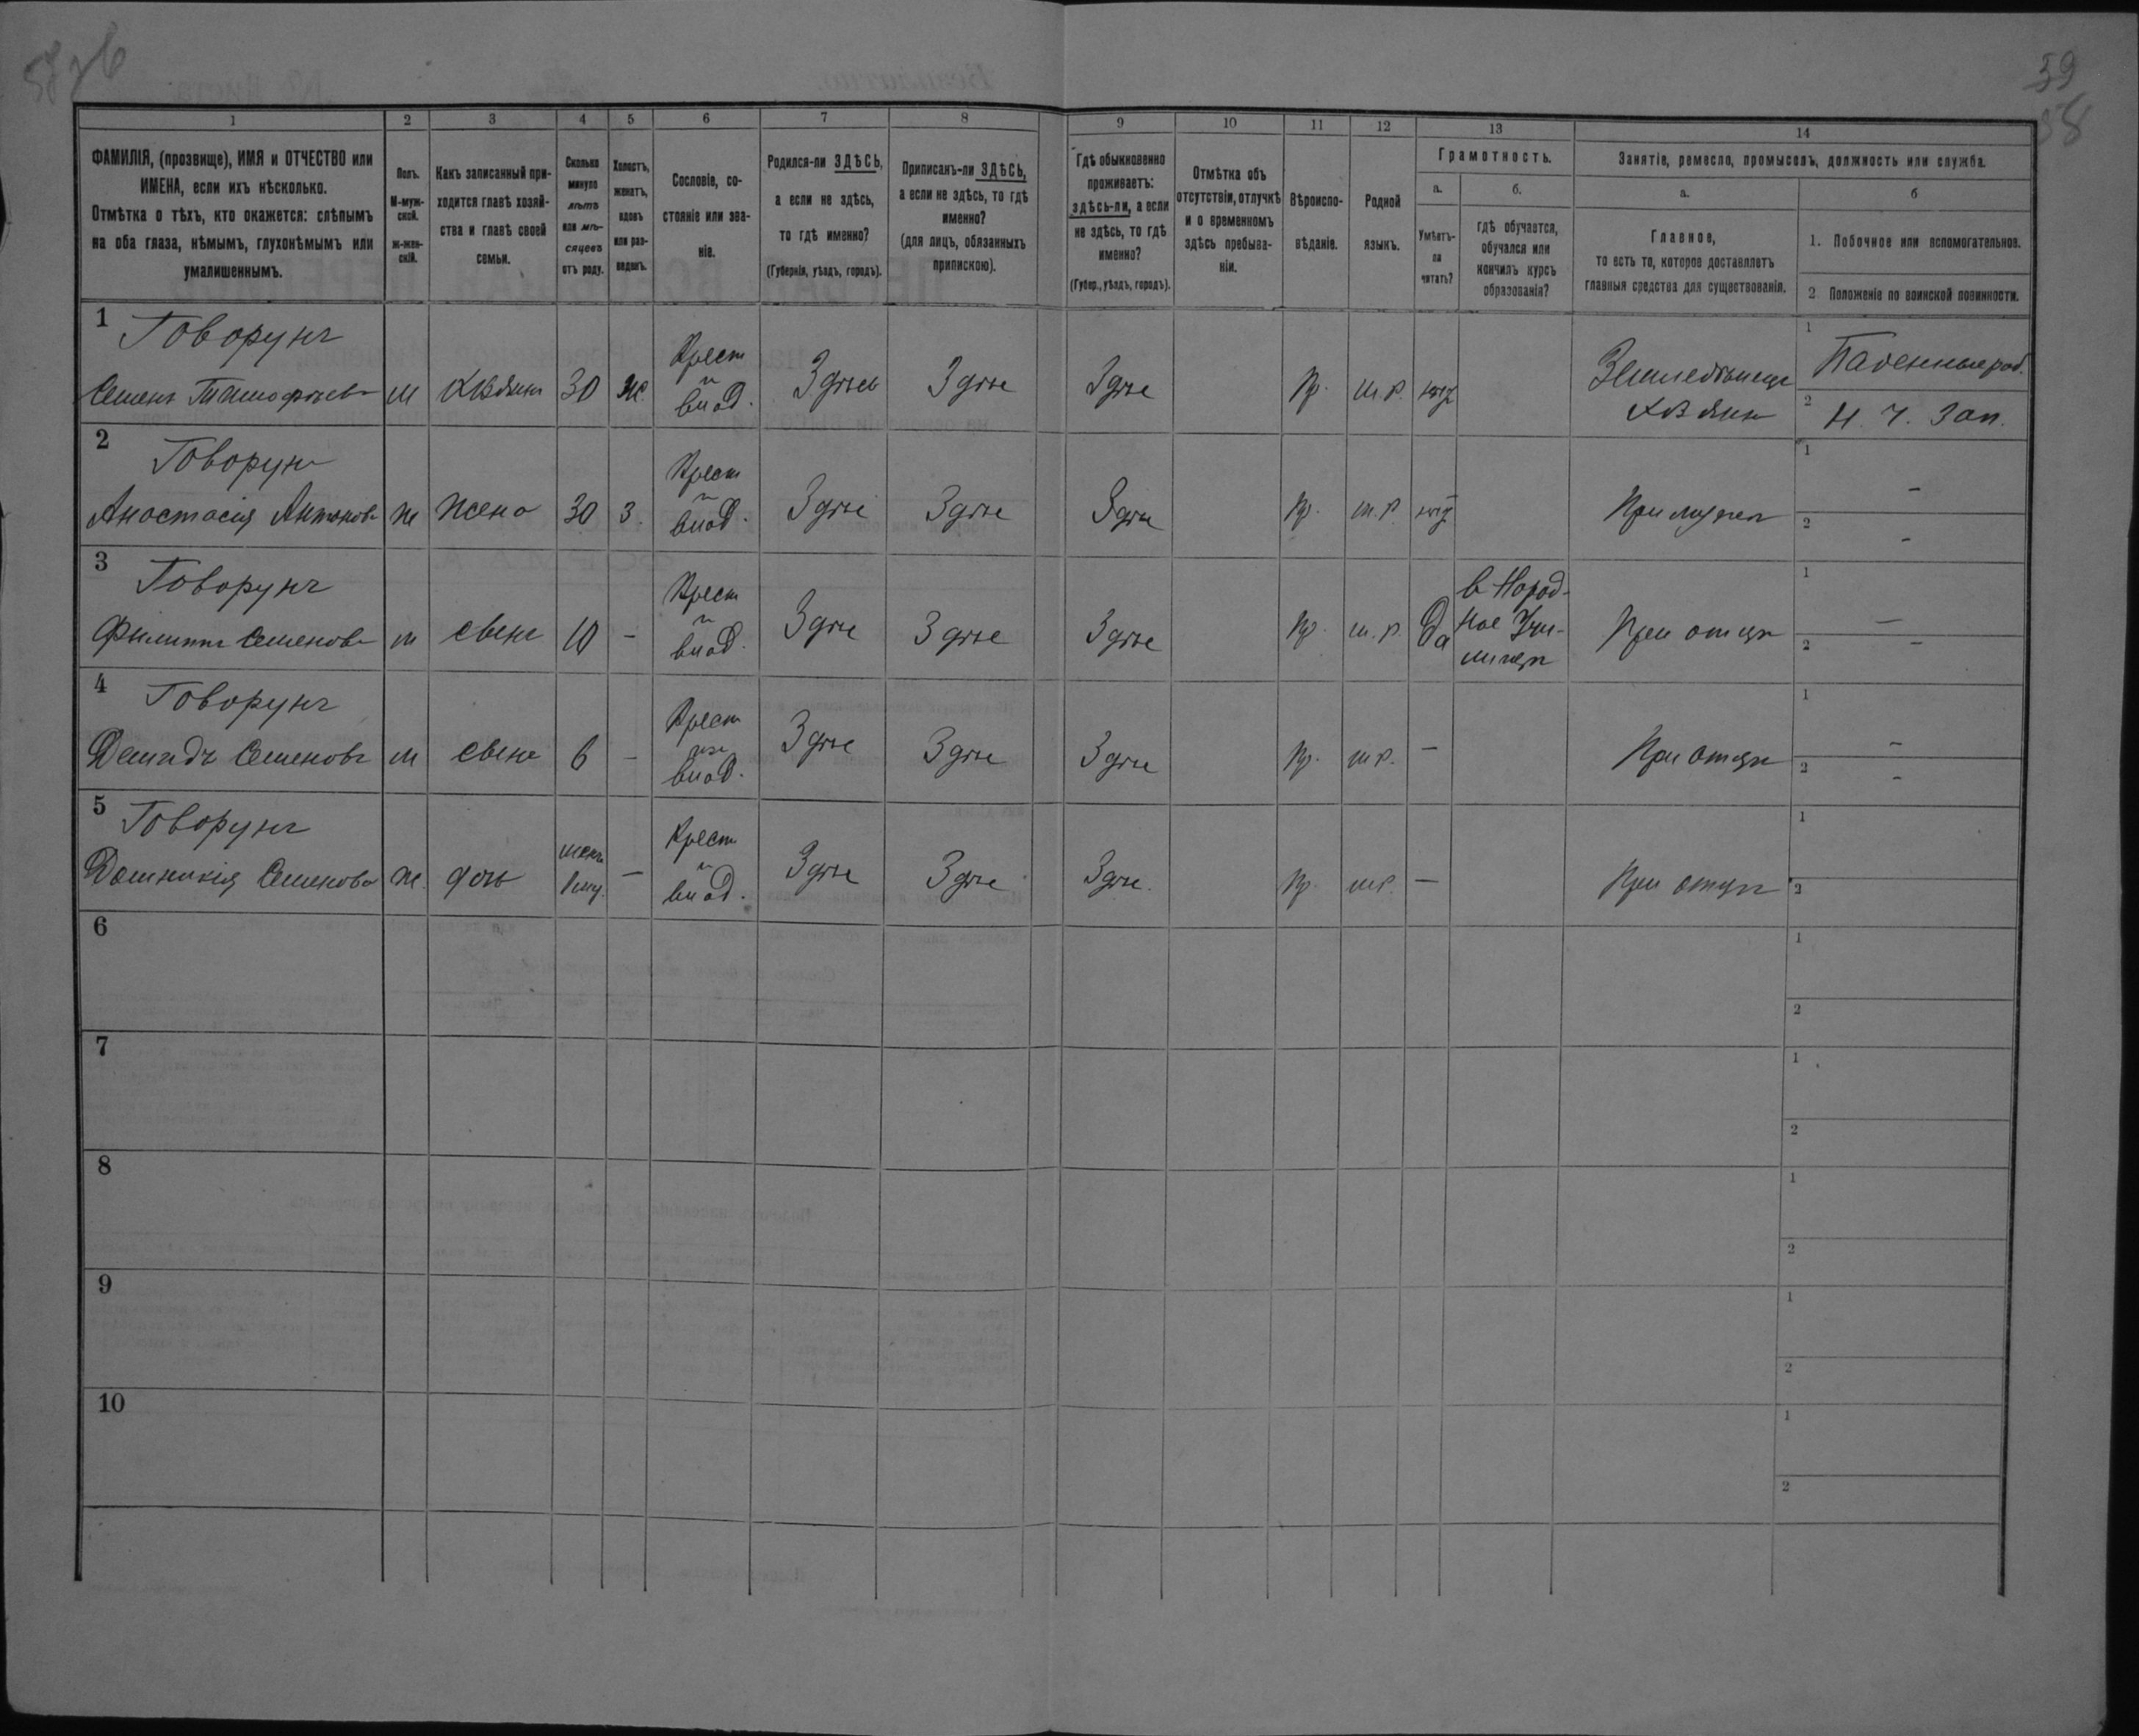 39
38
1 2 3 4 5 6 7 8 9 10 11 12 13 14
ФАМИЛІЯ, (прозвище), ИМЯ и ОТЧЕСТВО или
ИМЕНА, если ихъ нѣсколько.
Отмѣтка о тѣхъ, кто окажется: слѣпымъ
на оба глаза, нѣмымъ, глухонѣмымъ или
умалишеннымъ.
Полъ.
М-муж-
ской.
ж-жен-
скій.
Какъ записанный при-
ходится главѣ хозяй-
ства и главѣ своей
семьи.
Сколько
минуло
лѣтъ
или мѣ-
сяцевъ
отъ роду.
Холостъ,
женатъ,
вдовъ
или раз-
веденъ.
Сословіе, со-
стояніе или зва-
ніе.
Родился-ли ЗДѢСЬ,
а если не здѣсь,
то гдѣ именно?
(Губернія, уѣздъ, городъ).
Приписанъ-ли ЗДѢСЬ,
а если не здѣсь, то гдѣ
именно?
(для лицъ, обязанныхъ
припискою).
Гдѣ обыкновенно
проживаетъ:
здѣсь-ли, а если
не здѣсь, то гдѣ
именно?
(Губер., уѣздъ, городъ).
Отмѣтка объ
отсутствіи, отлучкѣ
и о временномъ
здѣсь пребыва-
ніи.
Вѣроиспо-
вѣданіе.
Родной
языкъ.
Грамотность.
а.
Умѣетъ-
ли
читать?
б.
гдѣ обучается,
обучался или
кончилъ курсъ
образованія?
Занятіе, ремесло, промыселъ, должность или служба.
а.
Главное,
то есть то, которое доставляетъ
главныя средства для существованія.
б
1. Побочное или вспомогательное.
2 Положеніе по воинской повинности.
1
Говорунъ
Семенъ Тимофѣевъ
м
30
ж.
Крест
влад.
Здѣсь
Здѣсе
Здѣсе
Пр.
м.р.
1
2
Н. Ч. Зап.
2
Говорун
Анастасія Антонов
ж
жена
30
З.
Крест
влад.
Здѣсе
Здѣсе
Здѣсе
Пр.
м.р.
При мужѣ
1 -
2 -
3
Говорунъ
Филиппъ Семеновъ
м
свенъ
10
-
Крест
влад.
Здѣсе
Здѣсе
Здѣсе
Пр.
м.р.
Да
в Народ-
ное Учи-
лище
При отцѣ
1 -
2 -
4
Говорунъ
Демидъ Семеновъ
м
свенъ
6
-
Крест
влад.
Здѣсе
Здѣсе
Здѣсе
Пр.
м.р.
-
При отцѣ
1 -
2 -
5
Говорунъ
Домникія Семенова
ж.
дочь
-
Крест
влад.
Здѣсе
Здѣсе
Здѣсе.
Пр.
м.р.
-
При отцѣ
1
2
6
1
2
7
1
2
8
1
2
9
1
2
10
1
2